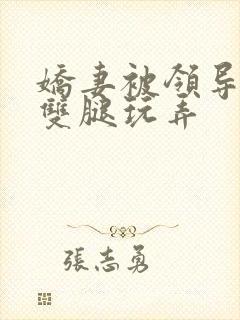 嬌妻被領导
雙腿玩弄
張志勇